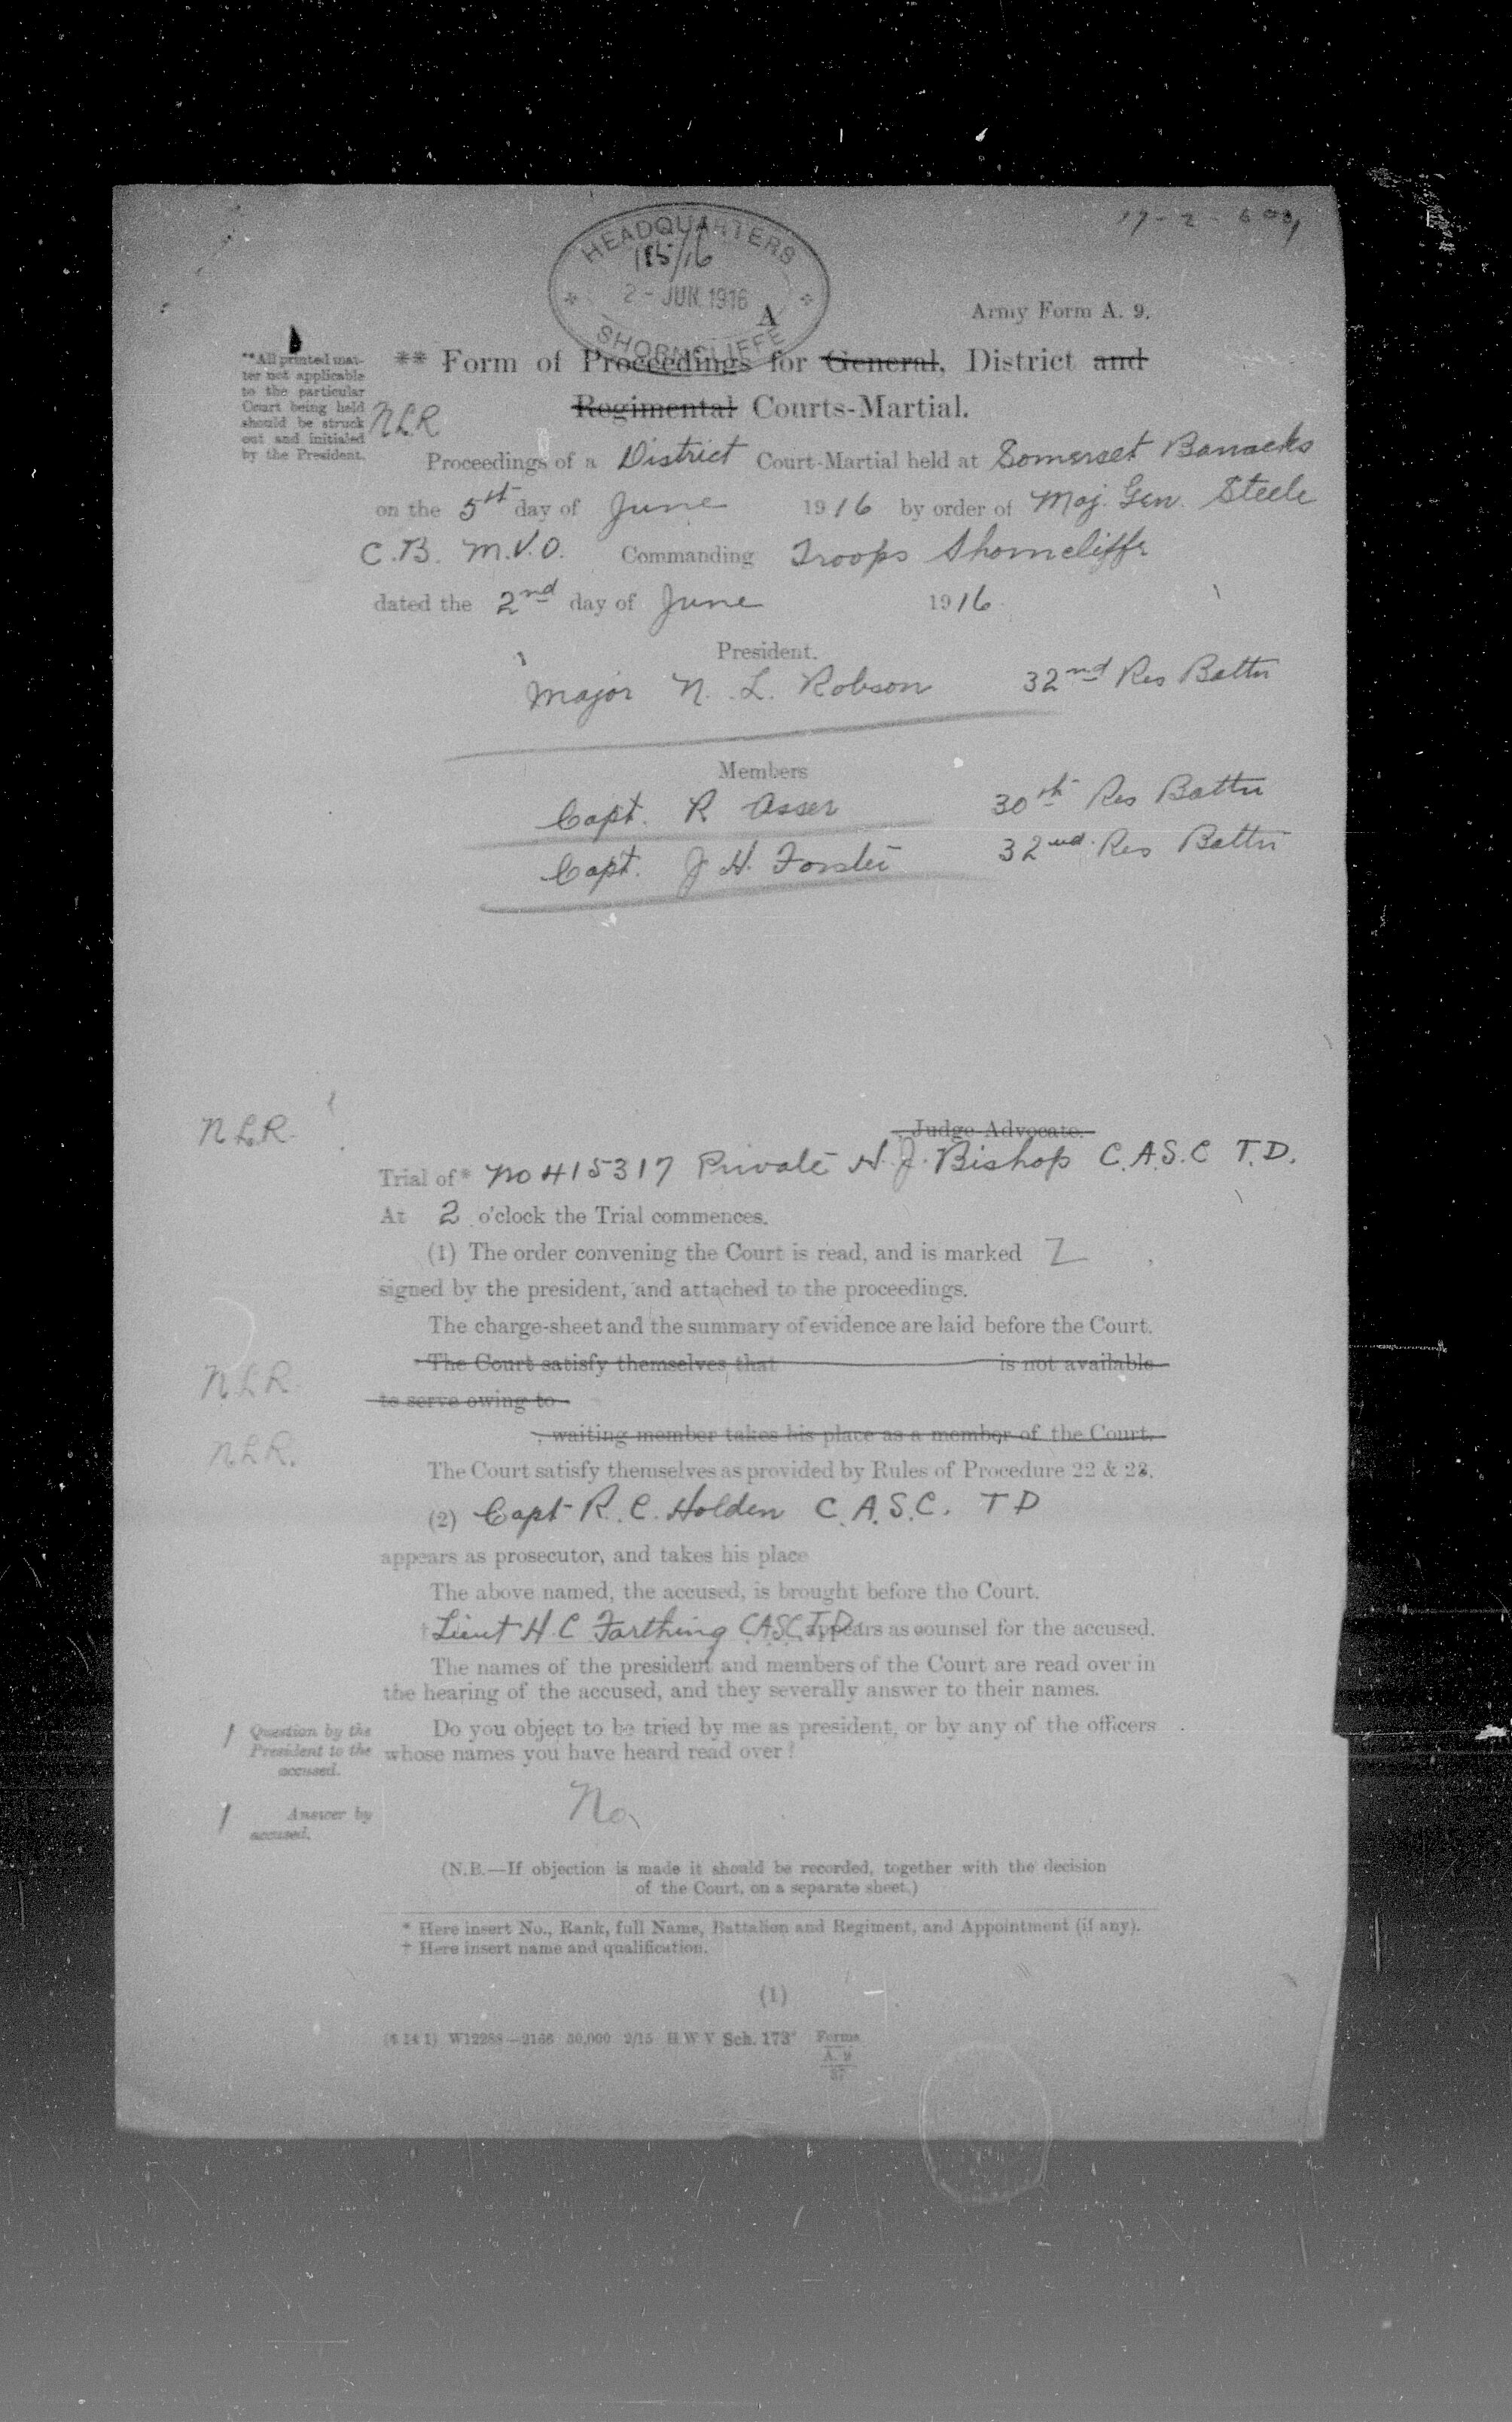 HEADQUARTERS
185/16
2 - JUN. 1916
SHORNCLIFFE
A
Army Form A. 9.
** Form of Proceedings for General, District and
Regimental Courts-Martial.
**All printed mat-
ter not applicable
to the particular
Court being held
should be struck
out and initialed
by the President.
NLR
Proceedings of a District Court-Martial held at Somerset Barracks
on the 5th day of June 1916 by order of Maj. Gen. Steele
C.B. M.V.O. Commanding Troops Shorncliffe
dated the 2nd day of June 1916
President.
Major N. L. Robson 32nd Res Battn
Members
Capt. R Asser 30th Res Battn
Capt. J H. Forster 32nd Res Battn
NLR. Judge Advocate.
Trial of* No 415317 Private H. J. Bishop C.A.S.C T.D.
At 2 o'clock the Trial commences.
(1) The order convening the Court is read, and is marked Z ,
signed by the president, and attached to the proceedings.
The charge-sheet and the summary of evidence are laid before the Court.
The Court satisfy themselves that is not available
NLR. to serve owing to
, waiting member takes his place as a member of the Court.
NLR. The Court satisfy themselves as provided by Rules of Procedure 22 & 23.
(2) Capt R. C. Holden C.A.S.C. TD
appears as prosecutor, and takes his place
The above named, the accused, is brought before the Court.
†Lieut H C Farthing CASC T.D. appears as counsel for the accused.
The names of the president and members of the Court are read over in
the hearing of the accused, and they severally answer to their names.
Question by the
President to the
accused.
Do you object to be tried by me as president, or by any of the officers
whose names you have heard read over?
Answer by
accused.
No.
(N.B.—If objection is made it should be recorded, together with the decision
of the Court, on a separate sheet.)
* Here insert No., Rank, full Name, Battalion and Regiment, and Appointment (if any).
† Here insert name and qualification.
(1)
W12288—2166 30,000 2/15 H W V Sch. 173 Forms
A. 9
37